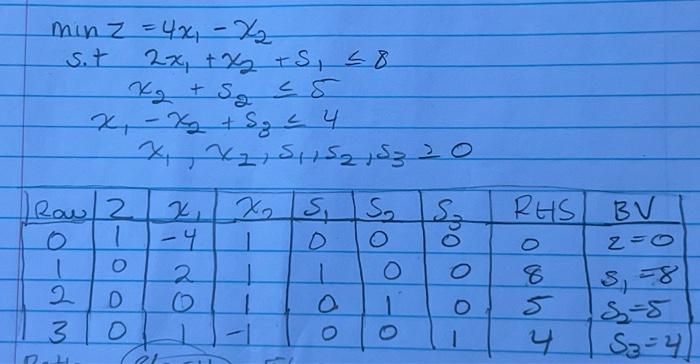 min z = 4x₁ - x₂
s.t 2x₁ + x₂ + s₁ ≤ 8
x₂ + s₂ ≤ 5
x₁ - x₂ + s₃ ≤ 4
x₁, x₂, s₁, s₂, s₃ ≥ 0
Row Z x₁ x₂ S₁ S₂ S₃ RHS BV
0 1 -4 1 0 0 0 0 z=0
1 0 2 1 1 0 0 8 s₁=8
2 0 0 1 0 1 0 5 s₂=5
3 0 1 -1 0 0 1 4 s₃=4